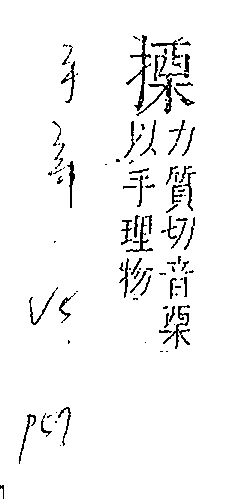 搮
力質切音栗
以手理物
手部. V5. P57